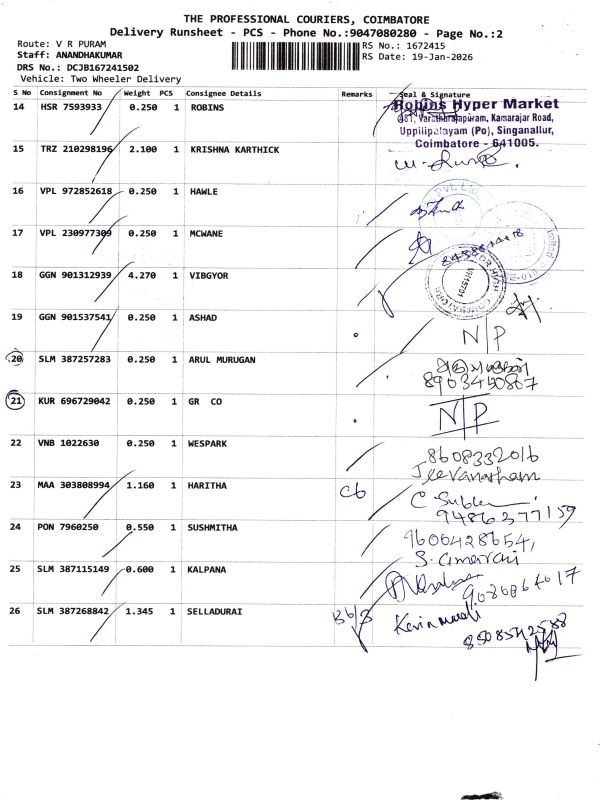 THE PROFESSIONAL COURIERS, COIMBATORE
Delivery Runsheet - PCS - Phone No.:9047080280 - Page No.:2
Route: V R PURAM RS No.: 1672415
Staff: ANANDHAKUMAR RS Date: 19-Jan-2026
DRS No.: DCJB167241502
Vehicle: Two Wheeler Delivery
S No Consignment No Weight PCS Consignee Details Remarks Seal & Signature
14 HSR 7593933 0.250 1 ROBINS
Robins Hyper Market
Varatharajapuram, Kamarajar Road,
Uppilipalayam (Po), Singanallur,
Coimbatore - 641005.
15 TRZ 210298196 2.100 1 KRISHNA KARTHICK
16 VPL 972852618 0.250 1 HAWLE
Pvt. Ltd.
17 VPL 230977309 0.250 1 MCWANE
18 GGN 901312939 4.270 1 VIBGYOR
19 GGN 901537541 0.250 1 ASHAD N/P
20 SLM 387257283 0.250 1 ARUL MURUGAN
8903450807
21 KUR 696729042 0.250 1 GR CO N/P
22 VNB 1022630 0.250 1 WESPARK 8608332016
Jeevanatham
23 MAA 303808994 1.160 1 HARITHA
9486377159
24 PON 7960250 0.550 1 SUSHMITHA 9600428654,
25 SLM 387115149 0.600 1 KALPANA
26 SLM 387268842 1.345 1 SELLADURAI